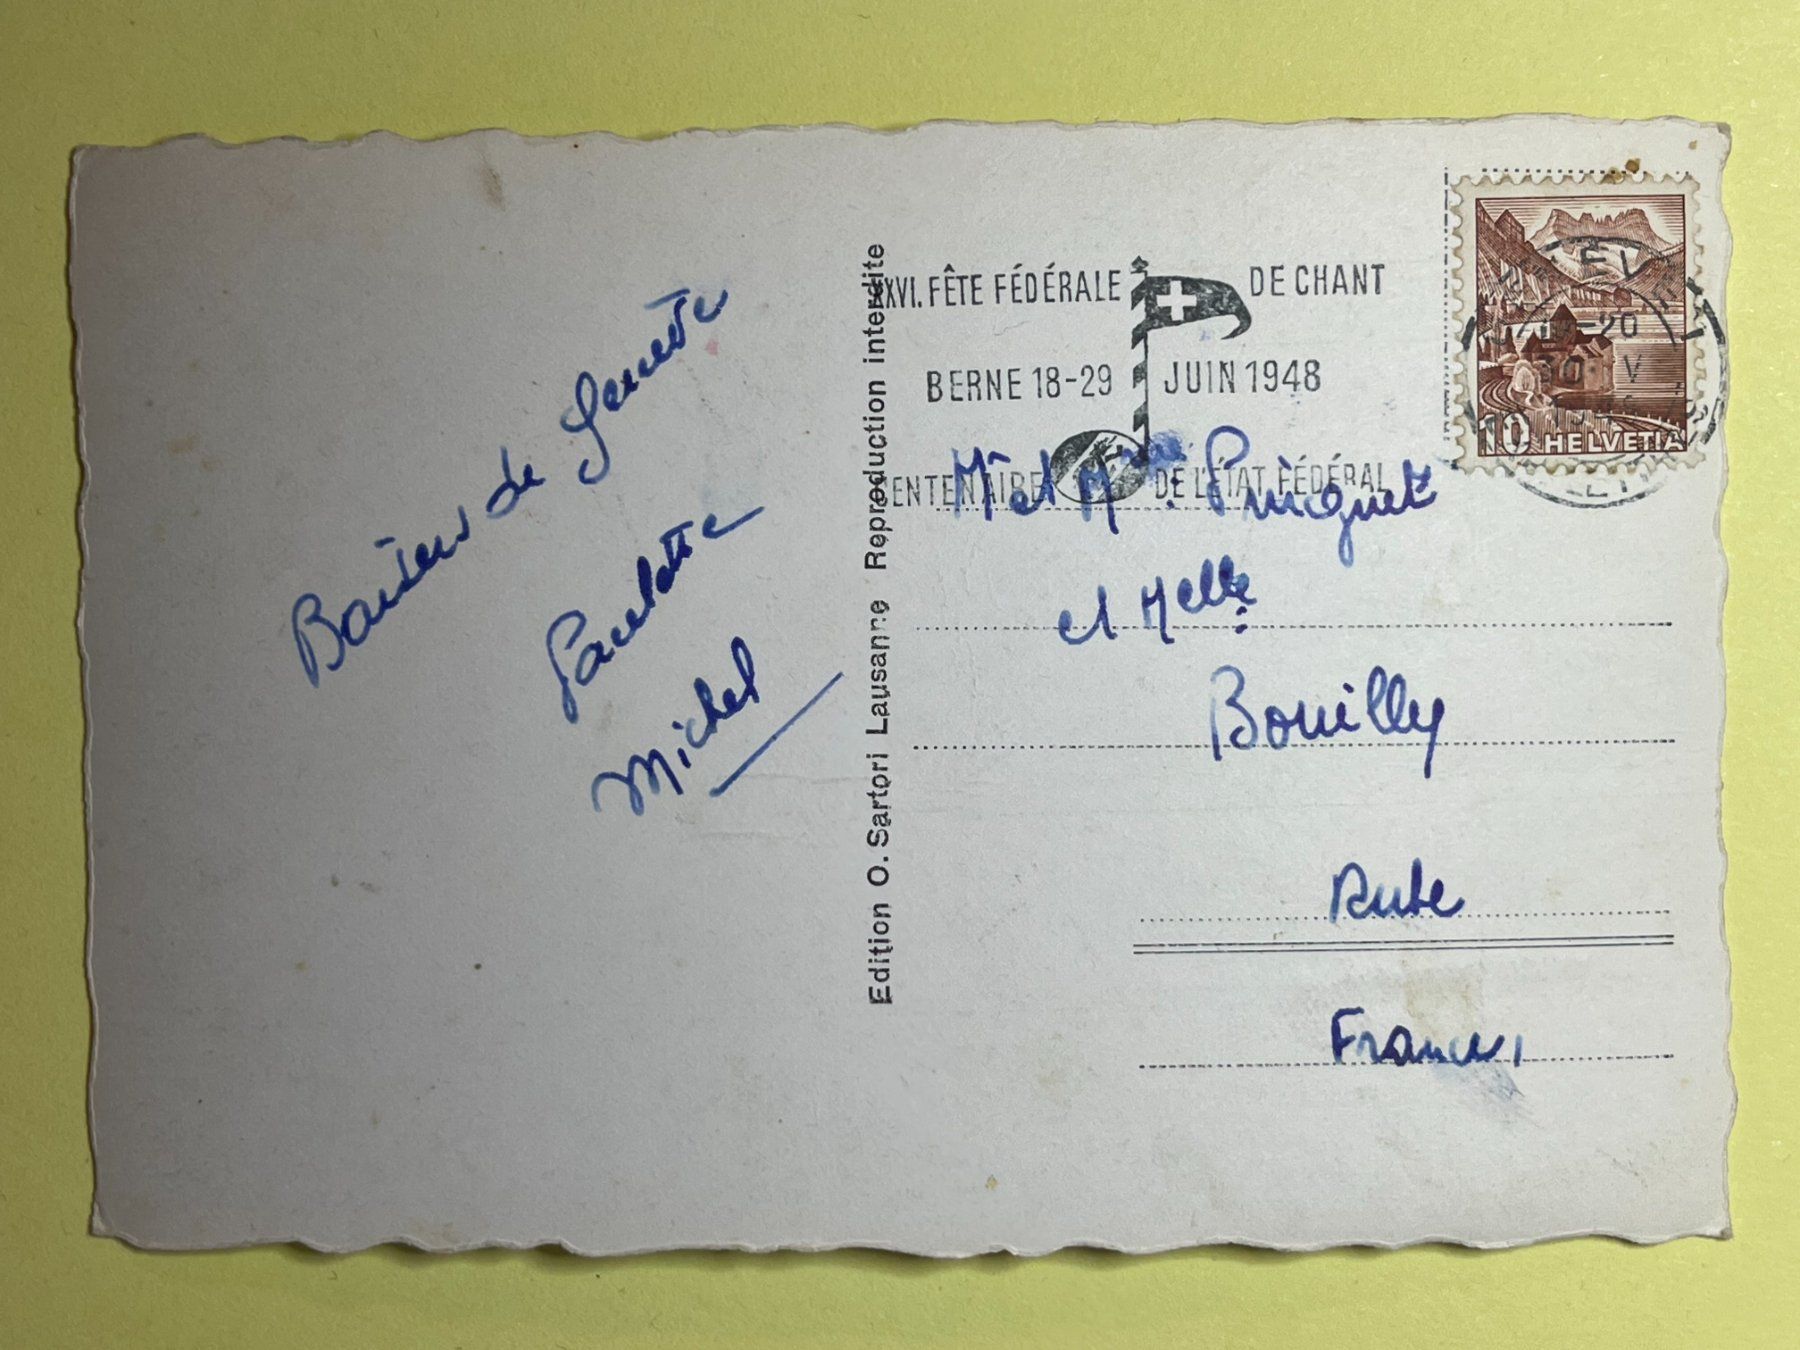 Baisers de Genève
Paulette
Michel
Edition O. Sartori Lausanne Reproduction interdite
XXVI. FÊTE FÉDÉRALE DE CHANT
BERNE 18-29 JUIN 1948
CENTENAIRE DE L'ÉTAT FÉDÉRAL
10 HELVETIA
Mr et Mme
et Melle
Bouilly
Aube
France